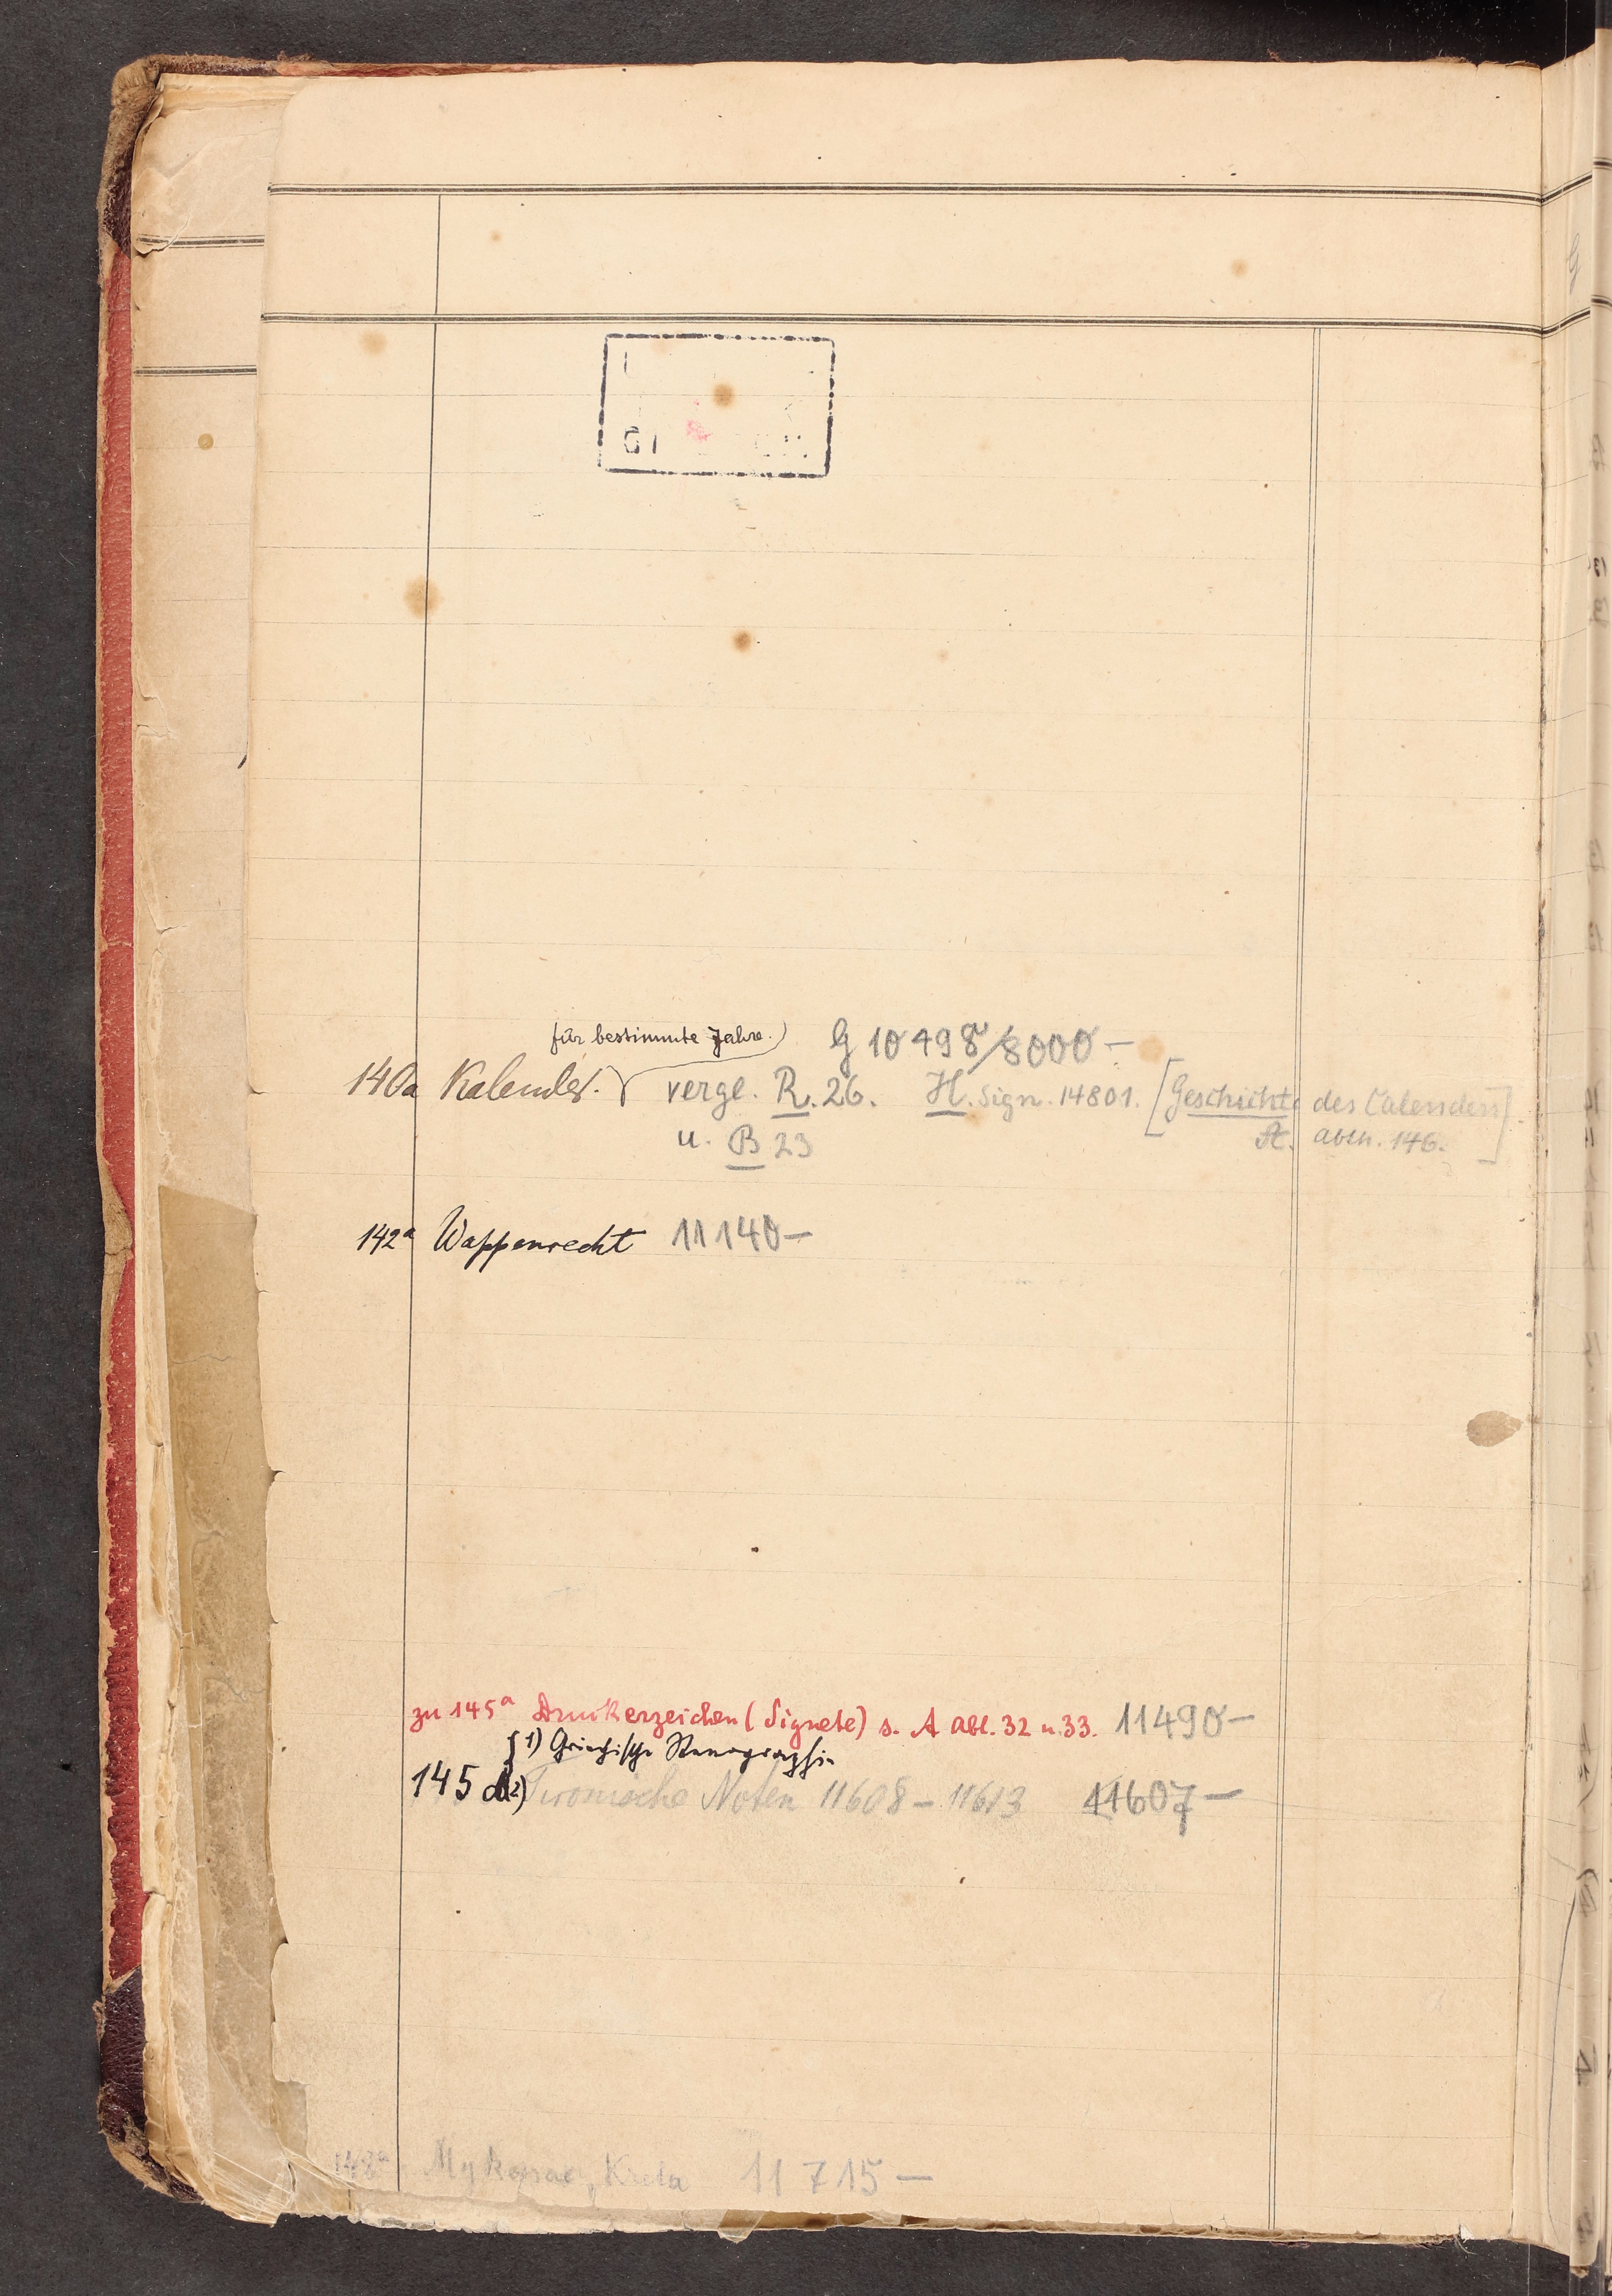 für bestimmte Jahre.) G 10498/8000 –
140a Kalender. vergl. R. 26. H. Sign. 14801. [Geschichte des Calenders
u. B 23 A. abth. 146.]
142a Wappenrecht 11140 –
zu 145a Druckerzeichen (Signete) s. A Abt. 32 u. 33. 11490 –
1) Griechische Stenographie
145 d 2) Tironische Noten 11608 – 11613 11607 –
148a Mykenae, Kreta 11715 –